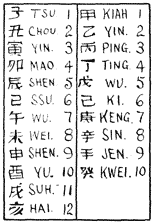 子 TSU. 1
丑 CHOU 2
寅 YIN. 3
卯 MAO. 4
辰 SHEN 5
巳 SSU. 6
午 WU. 7
未 WEI. 8
申 SHEN. 9
酉 YU. 10
戌 SUH. 11
亥 HAI. 12
甲 KIAH 1
乙 YIN. 2
丙 PING. 3
丁 TING. 4
戊 WU. 5
己 KI. 6
庚 KENG. 7
辛 SIN. 8
JEN. 9
癸 KWEI. 10